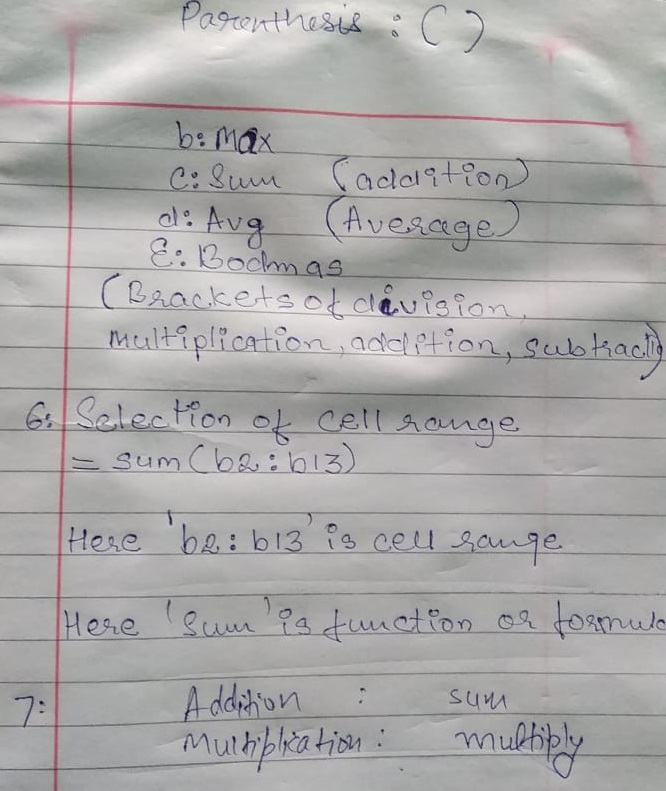 Parenthesis : ( )
b: Max
C: Sum (addition)
d: Avg (Average)
E: Bodmas
(Brackets of division,
Multiplication, addition, subtractio)
6: Selection of cell range
= sum(b2:b13)
Here 'b2:b13' is cell range
Here 'Sum' is function or formula
7: Addition : sum
Multiplication : multiply